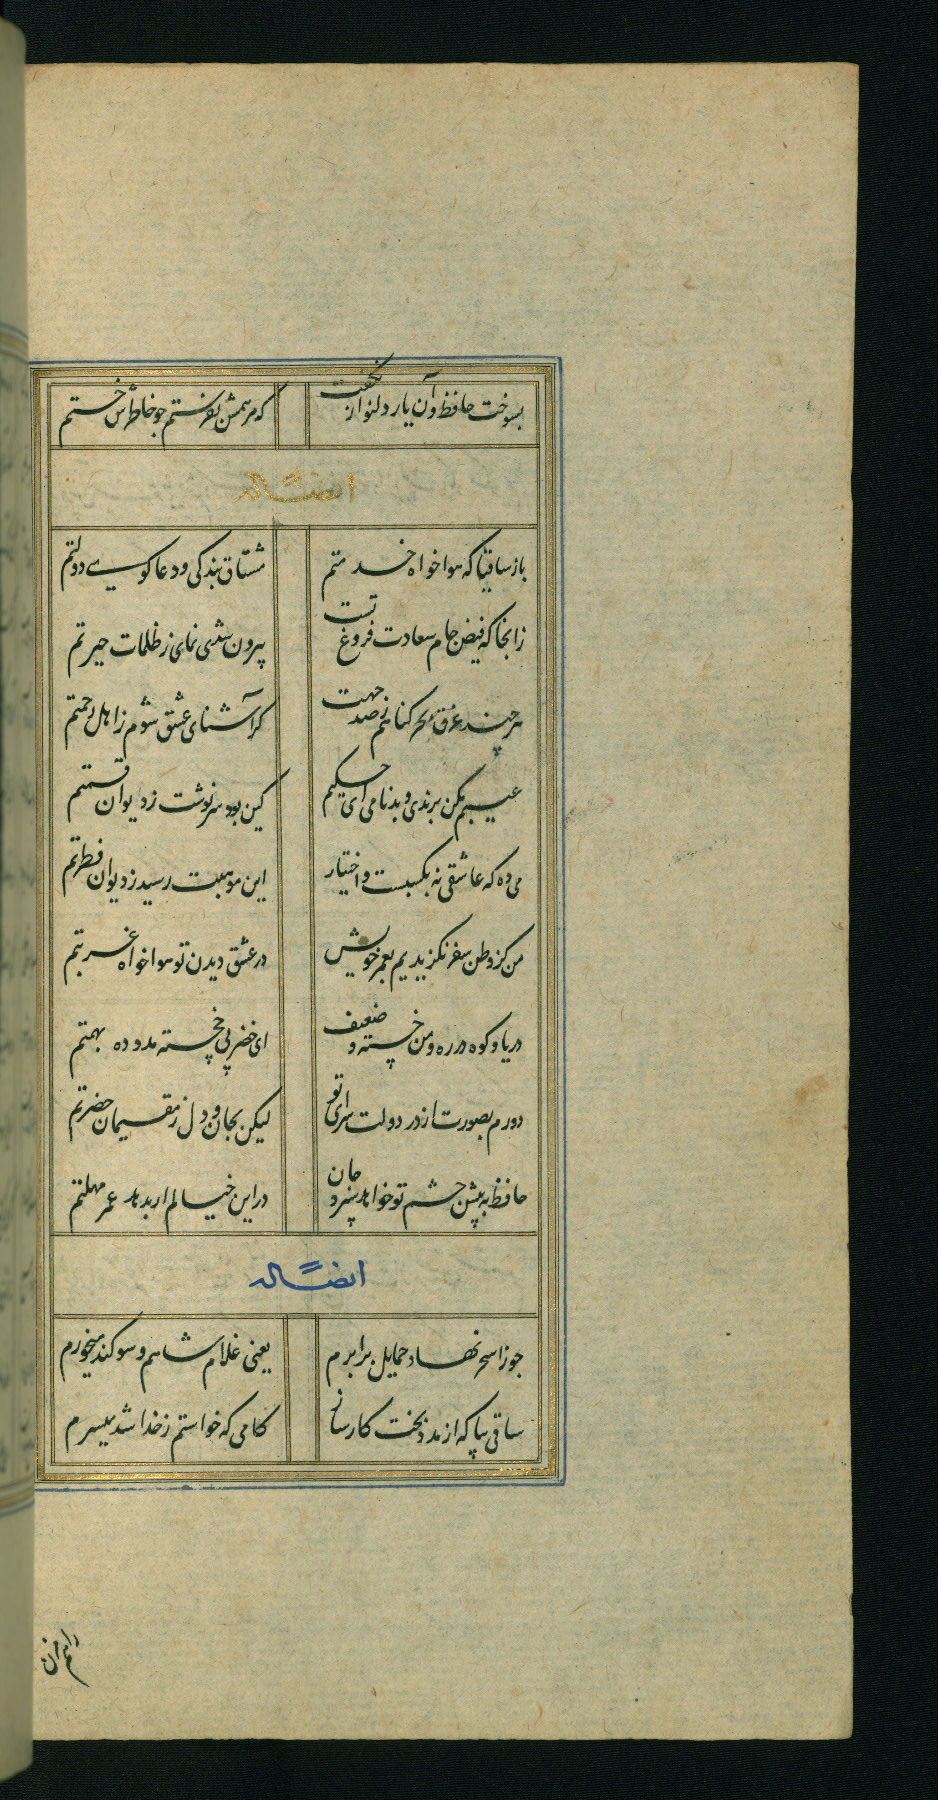 بسوخت حافظ و آن یار دلنواز نگفت
که مرهمش بفرستم چو خاطرش خستم
ایضاً له
باز ساقیا که هوا خواه خدمتم
مشتاق بندگی و دعا گوی دولتم
زانجا که فیض جام سعادت فروغ تست
بیرون شدی نمای ز ظلمات حیرتم
هر چند غرق بحر کناهم ز صد جهت
کر آشنای عشق شوم ز اهل رحمتم
عیبم مکن برندی و بدنامی ای حکیم
کین بود سرنوشت ز دیوان قسمتم
می ده که عاشقی نه بکسبست و اختیار
این موهبت رسید ز دیوان فطرتم
من کز وطن سفر نگزیدیم بعمر خویش
در عشق دیدن تو هوا خواه غربتم
دریا و کوه در ره و من خسته و ضعیف
ای خضر پی خجسته مدد ده بهمتم
دورم بصورت از در دولت سرای تو
لیکن بجان و دل ز مقیمان حضرتم
حافظ به پیش چشم تو خواهد سپرد جان
در این خیالم ار بدهد عمر مهلتم
ایضاً له
جوزا سحر نهاد حمایل برابرم
یعنی غلام شاهم و سوکند میخورم
ساقی بیا که از مدد بخت کارساز
کامی که خواستم ز خدا شد میسرم